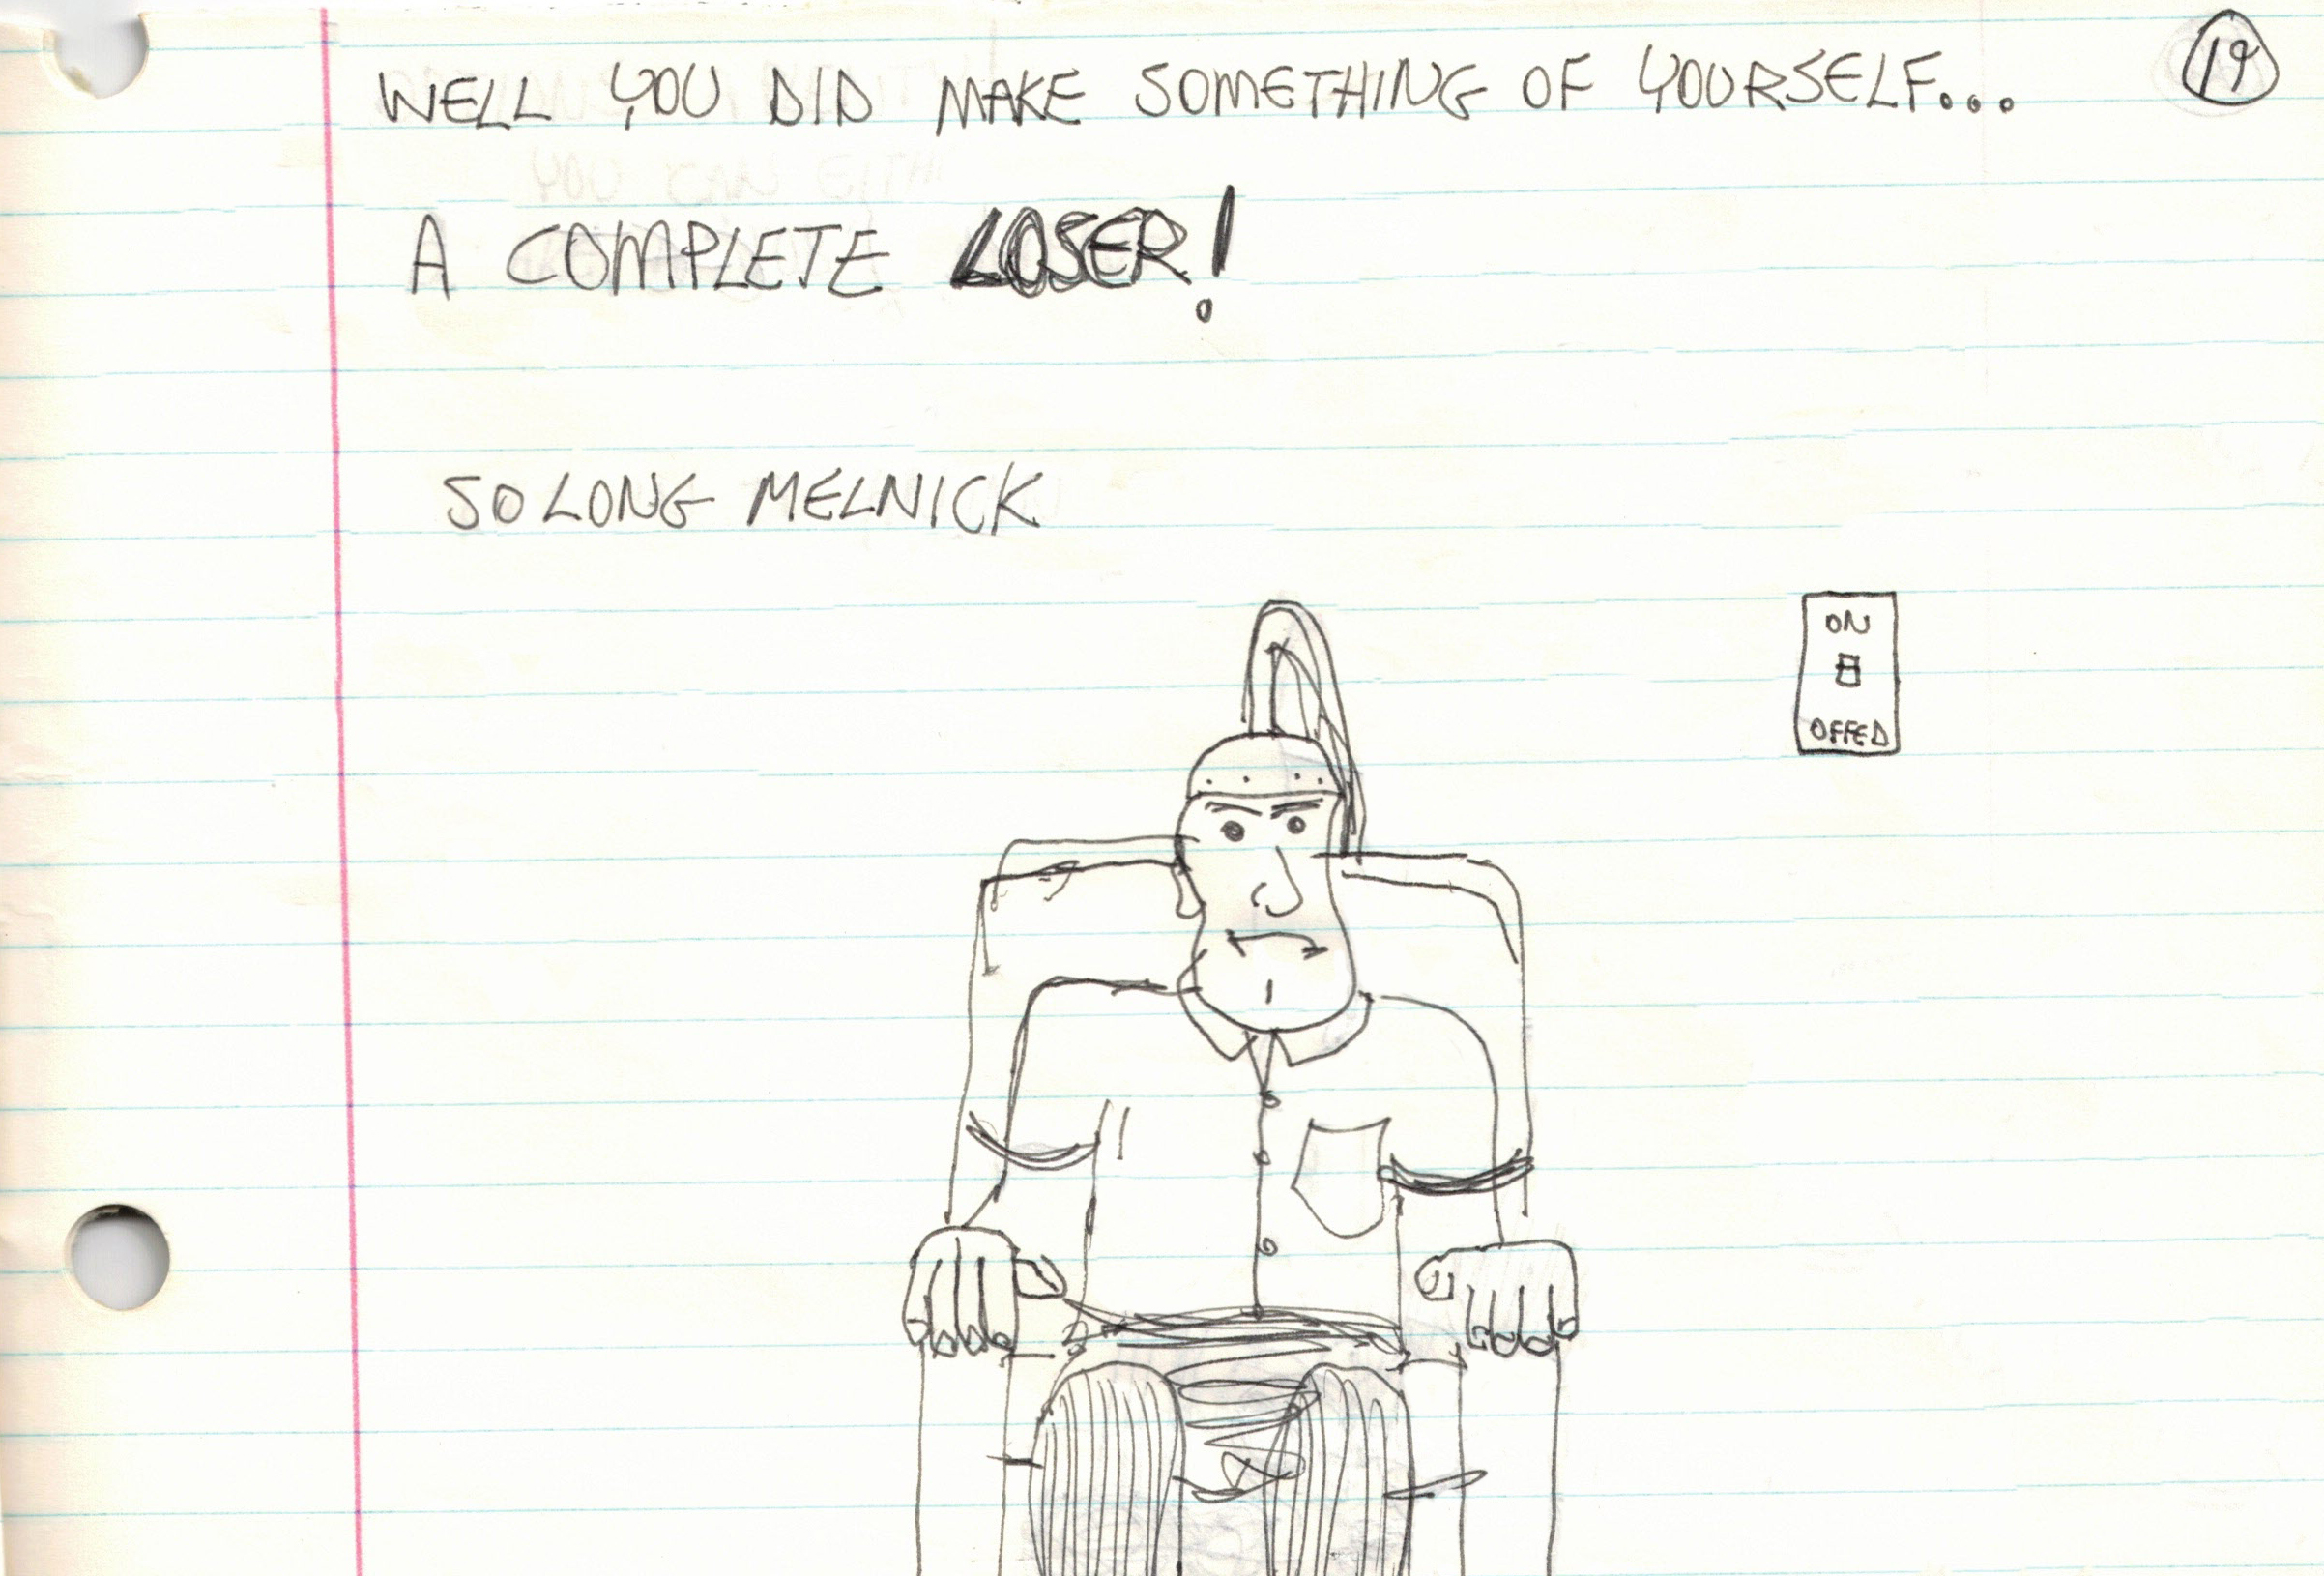 WELL YOU DID MAKE SOMETHING OF YOURSELF...
19
A COMPLETE LOSER!
SO LONG MELNICK
ON
OFFED